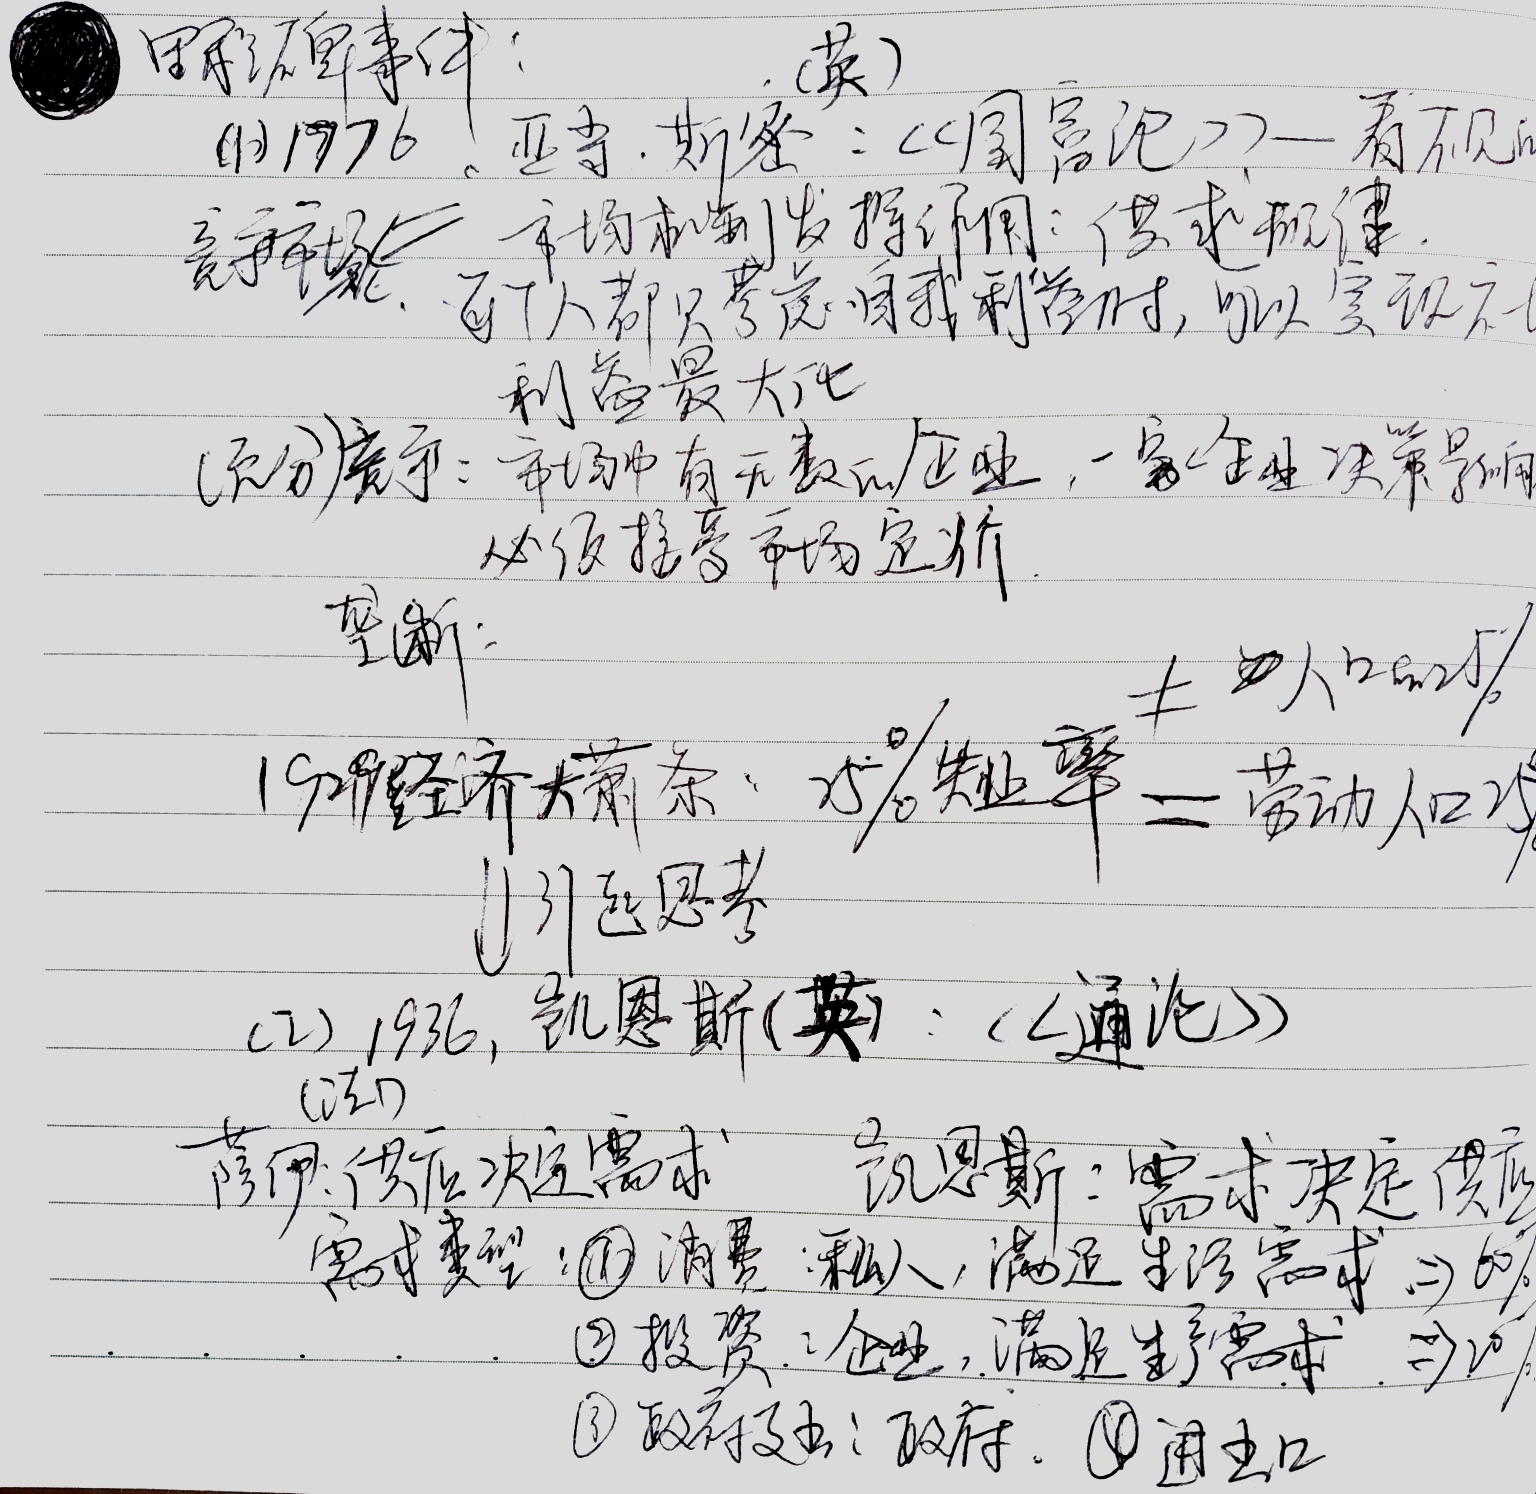 里程碑事件:
(英)
(1) 1976、亚当·斯密:《国富论》— 看不见的
竞争市场 市场机制发挥作用:供求规律.
每个人都只考虑自我利益时,可以实现
利益最大化
(充分)竞争:市场中有无数的企业,一家企业决策影响
必须接受市场定价.
垄断:
≠ 人口的25%
1929经济大萧条:25%失业率 = 劳动人口25%
引起思考
(2) 1936, 凯恩斯(英):《通论》
(法)
萨伊:供应决定需求 凯恩斯:需求决定供应
需求类型:① 消费:私人,满足生活需求 ⇒ 60%
② 投资:企业,满足生产需求 ⇒ 20%
③ 政府支出:政府. ④ 进出口